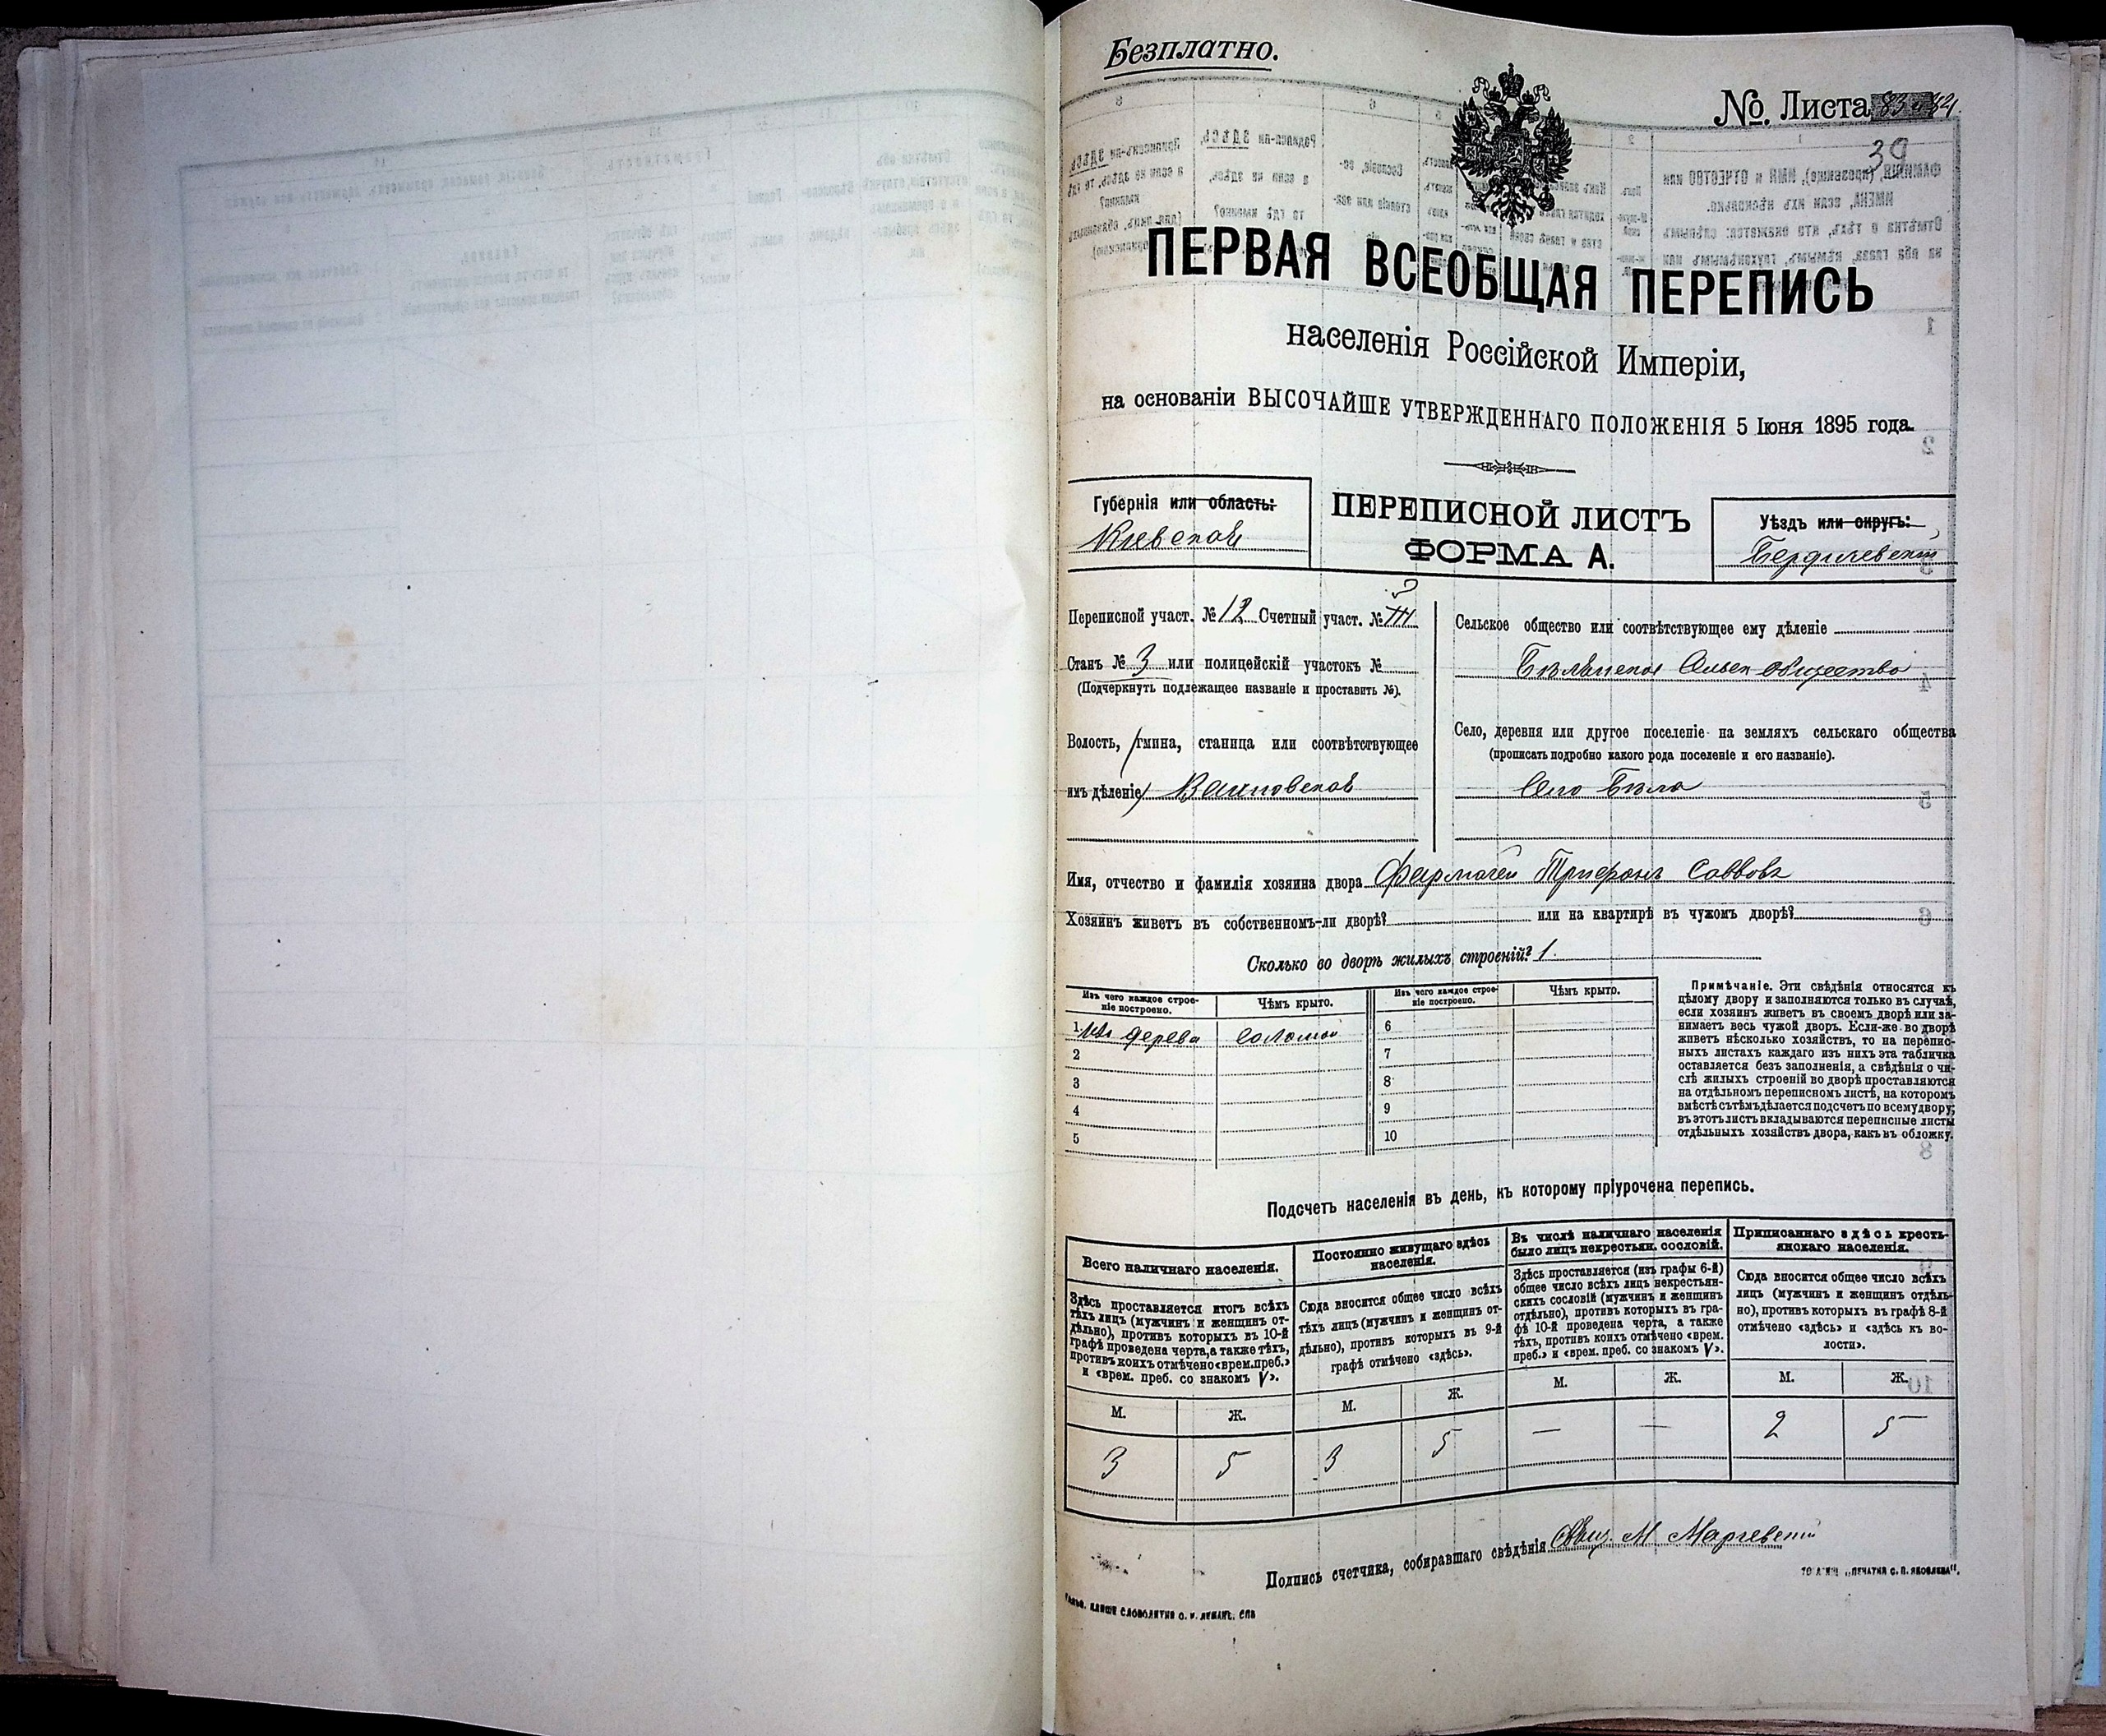 Безплатно.
№. Листа
39
ПЕРВАЯ ВСЕОБЩАЯ ПЕРЕПИСЬ
населенія Россійской Имперіи,
на основаніи ВЫСОЧАЙШЕ УТВЕРЖДЕННАГО ПОЛОЖЕНІЯ 5 Іюня 1895 года.
Губернія или область:
Кіевская
ПЕРЕПИСНОЙ ЛИСТЪ
ФОРМА А.
Уѣздъ или округъ:
Бердичевскій
Переписной участ. № 12 Счетный участ. № III
Станъ № 3 или полицейскій участокъ №
(Подчеркнуть подлежащее названіе и проставить №).
Волость, гмина, станица или соотвѣтствующее
имъ дѣленіе Вахновская
Сельское общество или соотвѣтствующее ему дѣленіе
Сельск общество
Село, деревня или другое поселеніе на земляхъ сельскаго общества
(прописать подробно какого рода поселеніе и его названіе).
Село
Имя, отчество и фамилія хозяина двора Трифонъ Саввовъ
Хозяинъ живетъ въ собственномъ-ли дворѣ? или на квартирѣ въ чужомъ дворѣ?
Сколько во дворѣ жилыхъ строеній? 1.
Изъ чего каждое строе-
ніе построено.
Чѣмъ крыто.
Изъ чего каждое строе-
ніе построено.
Чѣмъ крыто.
1 Изъ дерева соломой
2
3
4
5
6
7
8
9
10
Примѣчаніе. Эти свѣдѣнія относятся къ
цѣлому двору и заполняются только въ случаѣ,
если хозяинъ живетъ въ своемъ дворѣ или за-
нимаетъ весь чужой дворъ. Если-же во дворѣ
живетъ нѣсколько хозяйствъ, то на перепис-
ныхъ листахъ каждаго изъ нихъ эта табличка
оставляется безъ заполненія, а свѣдѣнія о чи-
слѣ жилыхъ строеній во дворѣ проставляются
на отдѣльномъ переписномъ листѣ, на которомъ
вмѣстѣ съ тѣмъ дѣлается подсчетъ по всему двору;
въ этотъ листъ вкладываются переписные листы
отдѣльныхъ хозяйствъ двора, какъ въ обложку.
Подсчетъ населенія въ день, къ которому пріурочена перепись.
Всего наличнаго населенія.
Здѣсь проставляется итогъ всѣхъ
тѣхъ лицъ (мужчинъ и женщинъ от-
дѣльно), противъ которыхъ въ 10-й
графѣ проведена черта, а также тѣхъ,
противъ коихъ отмѣчено «врем. преб.»
и «врем. преб. со знакомъ V».
М. Ж.
3 5
Постоянно живущаго здѣсь
населенія.
Сюда вносится общее число всѣхъ
тѣхъ лицъ (мужчинъ и женщинъ от-
дѣльно), противъ которыхъ въ 9-й
графѣ отмѣчено «здѣсь».
М. Ж.
3 5
Въ числѣ наличнаго населенія
было лицъ некрестьян. сословій.
Здѣсь проставляется (изъ графы 6-й)
общее число всѣхъ лицъ некрестьян-
скихъ сословій (мужчинъ и женщинъ
отдѣльно), противъ которыхъ въ гра-
фѣ 10-й проведена черта, а также
тѣхъ, противъ коихъ отмѣчено «врем.
преб.» и «врем. преб. со знакомъ V».
М. Ж.
— —
Приписаннаго здѣсь кресть-
янскаго населенія.
Сюда вносится общее число всѣхъ
лицъ (мужчинъ и женщинъ отдѣль-
но), противъ которыхъ въ графѣ 8-й
отмѣчено «здѣсь» и «здѣсь къ во-
лости».
М. Ж.
2 5
Подпись счетчика, собиравшаго свѣдѣнія М